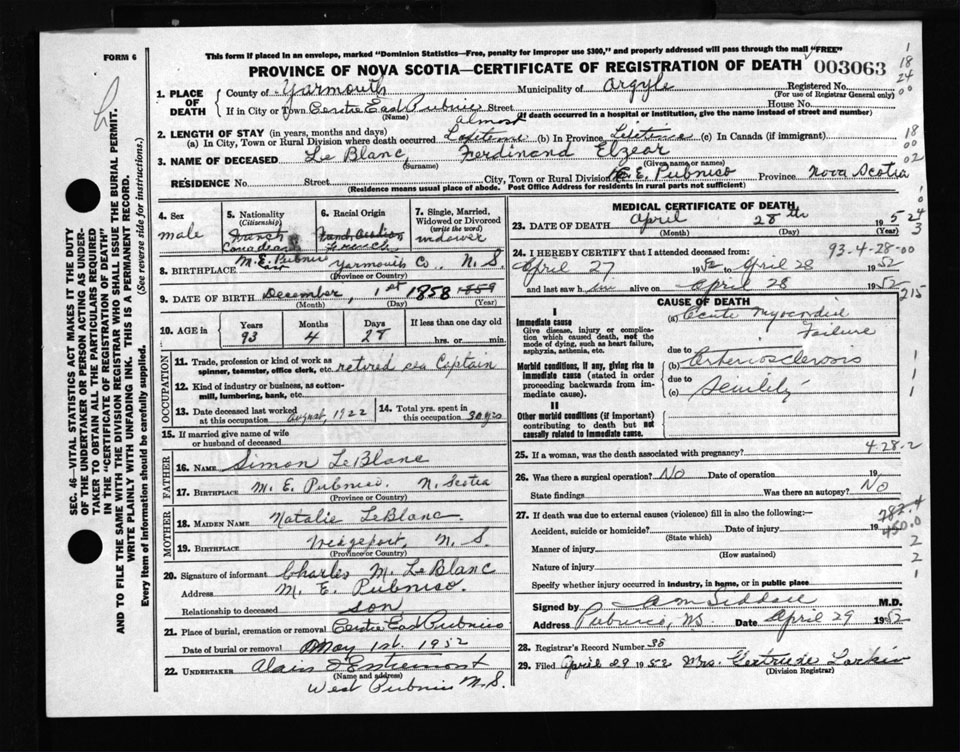 FORM 6
This form if placed in an envelope, marked "Dominion Statistics—Free, penalty for improper use $300," and properly addressed will pass through the mail "FREE"
PROVINCE OF NOVA SCOTIA—CERTIFICATE OF REGISTRATION OF DEATH 003063
SEC. 46—VITAL STATISTICS ACT MAKES IT THE DUTY
OF THE UNDERTAKER OR PERSON ACTING AS UNDER-
TAKER TO OBTAIN ALL THE PARTICULARS REQUIRED
IN THE "CERTIFICATE OF REGISTRATION OF DEATH"
AND TO FILE THE SAME WITH THE DIVISION REGISTRAR WHO SHALL ISSUE THE BURIAL PERMIT.
WRITE PLAINLY WITH UNFADING INK. THIS IS A PERMANENT RECORD.
Every Item of Information should be carefully supplied. (See reverse side for instructions.)
1. PLACE OF DEATH
County of Yarmouth Municipality of Argyle Registered No.
(For use of Registrar General only)
If in City or Town Centre East Pubnico Street House No.
(Name) (If death occurred in a hospital or institution, give the name instead of street and number)
2. LENGTH OF STAY (in years, months and days) almost
(a) In City, Town or Rural Division where death occurred Lifetime (b) In Province Lifetime (c) In Canada (if immigrant)
3. NAME OF DECEASED Le Blanc, Ferdinand Elzear
(Surname) (Given name or names)
RESIDENCE No. Street City, Town or Rural Division E. Pubnico Province Nova Scotia
(Residence means usual place of abode. Post Office Address for residents in rural parts not sufficient)
4. Sex
male
5. Nationality
(Citizenship)
Canadian
6. Racial Origin
French
7. Single, Married,
Widowed or Divorced
(write the word)
widower
8. BIRTHPLACE M. E. Pubnico Yarmouth Co., N. S.
(Province or Country)
9. DATE OF BIRTH December, 1st 1858 1859
(Month) (Day) (Year)
10. AGE in
Years Months Days If less than one day
93 4 28 hrs. or min.
OCCUPATION
11. Trade, profession or kind of work as
spinner, teamster, office clerk, etc. retired sea Captain
12. Kind of industry or business, as cotton-
mill, lumbering, bank, etc.
13. Date deceased last worked
at this occupation August, 1922
14. Total yrs. spent in
this occupation 30 yrs
15. If married give name of wife
or husband of deceased
FATHER
16. NAME Simon LeBlanc
17. BIRTHPLACE M. E. Pubnico. N. Scotia
(Province or Country)
MOTHER
18. MAIDEN NAME Natalie LeBlanc.
19. BIRTHPLACE Wedgeport, N. S.
(Province or Country)
20. Signature of informant Charles M. Le Blanc
Address M. E. Pubnico.
Relationship to deceased son
21. Place of burial, cremation or removal Centre East Pubnico
Date of burial or removal May 1st. 1952
22. UNDERTAKER Alain d'Entremont
(Name and address)
West Pubnico N. S.
MEDICAL CERTIFICATE OF DEATH
23. DATE OF DEATH April 28th 1952
(Month) (Day) (Year)
24. I HEREBY CERTIFY that I attended deceased from: 93-4-28-00
April 27 1952 to April 28 1952
and last saw him alive on April 28 1952
CAUSE OF DEATH
I
Immediate cause
Give disease, injury or complica-
tion which caused death, not the
mode of dying, such as heart failure,
asphyxia, asthenia, etc.
(a) Acute Myocardial
Failure
due to
Morbid conditions, if any, giving rise to
immediate cause (stated in order
proceeding backwards from im-
mediate cause).
(b) Arteriosclerosis
due to
(c) Senility
II
Other morbid conditions (if important)
contributing to death but not
causally related to immediate cause.
25. If a woman, was the death associated with pregnancy? 4-28-2
26. Was there a surgical operation? No Date of operation 19
State findings Was there an autopsy? No
27. If death was due to external causes (violence) fill in also the following:—
Accident, suicide or homicide? Date of injury 19 450.0
(State which)
Manner of injury
(How sustained)
Nature of injury
Specify whether injury occurred in industry, in home, or in public place
Signed by M.D.
Address Pubnico, NS Date April 29 1952
28. Registrar's Record Number 38
29. Filed April 29 1952 Mrs. Gertrude Larkin
(Division Registrar)